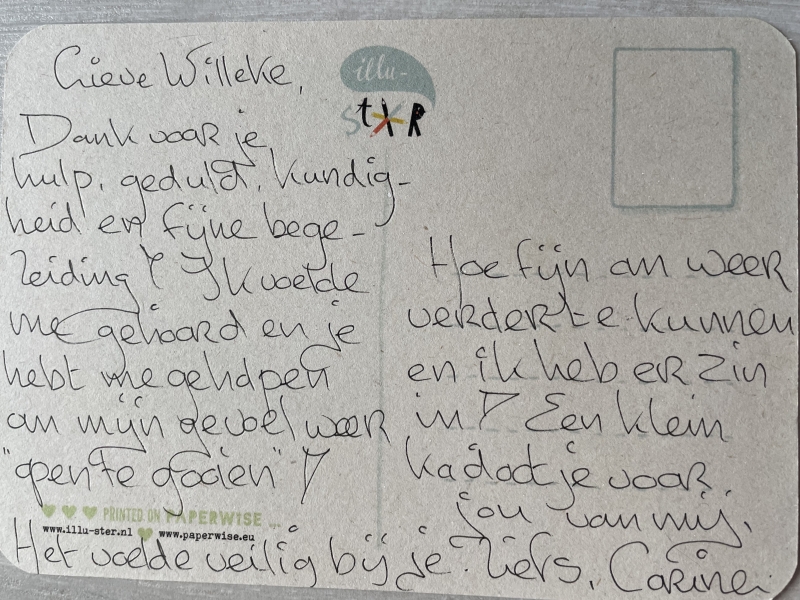 Lieve Willeke,
Dank voor je
hulp, geduld, kundig-
heid en fijne bege-
leiding! Ik voelde
me gehoord en je
hebt me geholpen
om mijn gevoel weer
"open te gooien"!
Het voelde veilig bij je. Liefs, Carine.
Hoe fijn om weer
verder te kunnen
en ik heb er zin
in! Een klein
kadootje voor
jou van mij.
illu-
stER
PRINTED ON PAPERWISE ...
www.illu-ster.nl www.paperwise.eu